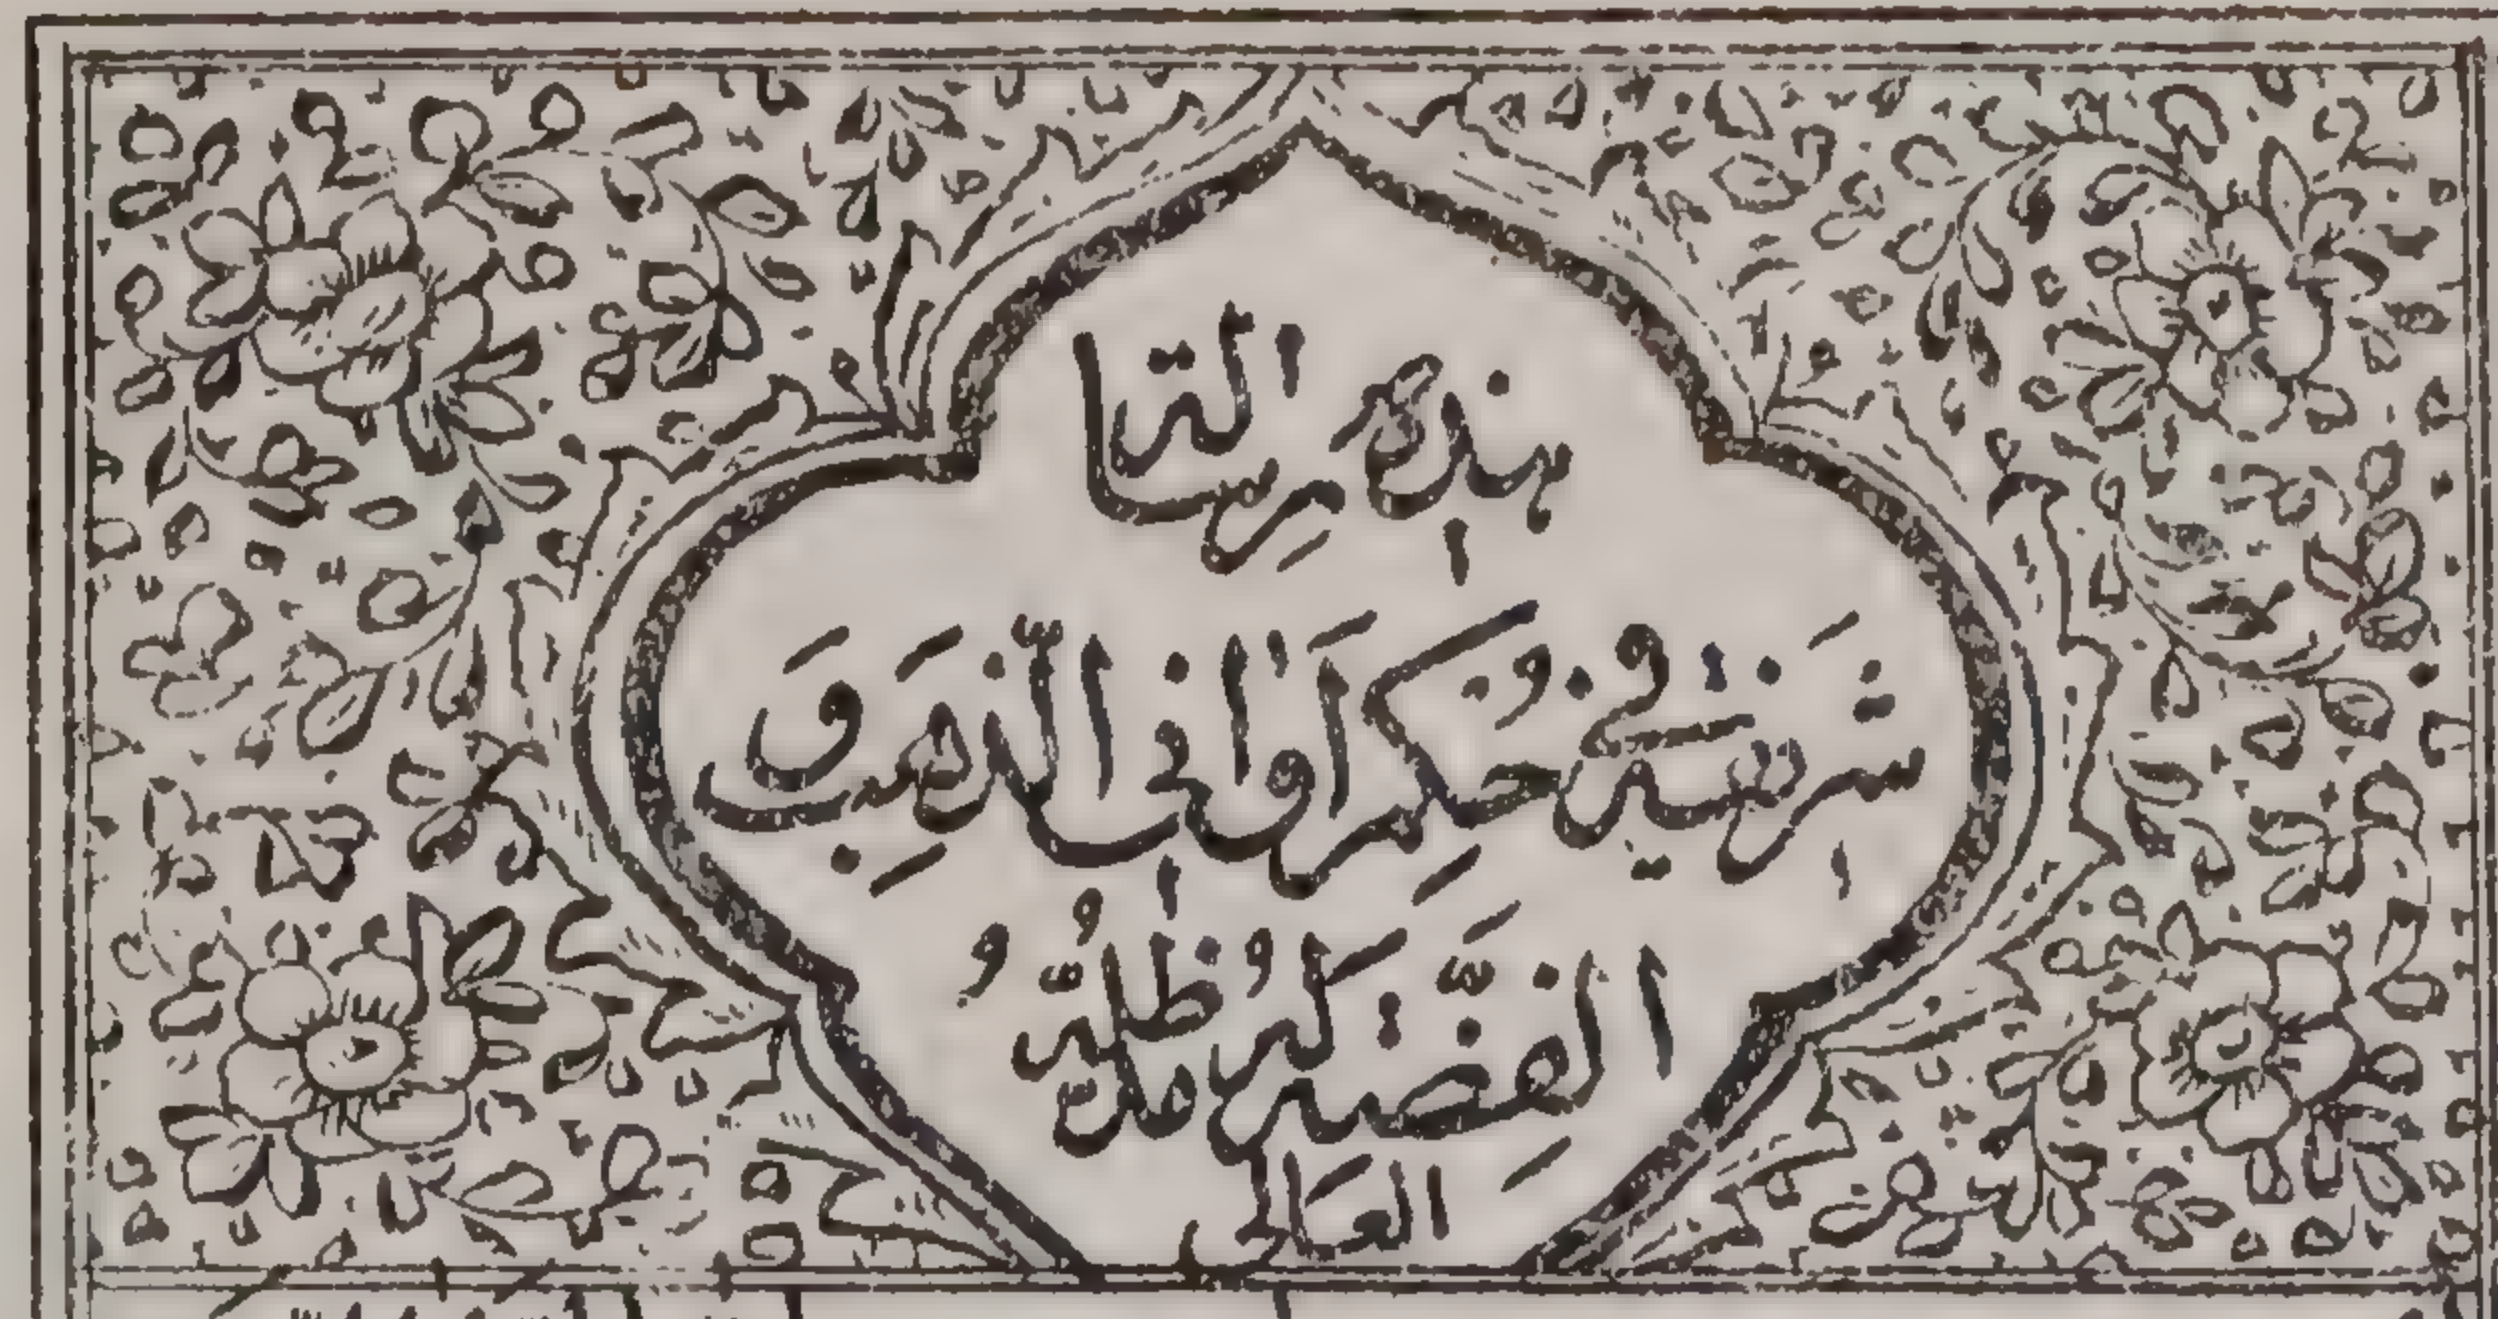 هٰذِهِ رِسالة
شَريفة في حُكمِ اَواني الذَّهَبِ وَ
الفِضَّة لَهُ مدّ ظلّهُ
العَالي